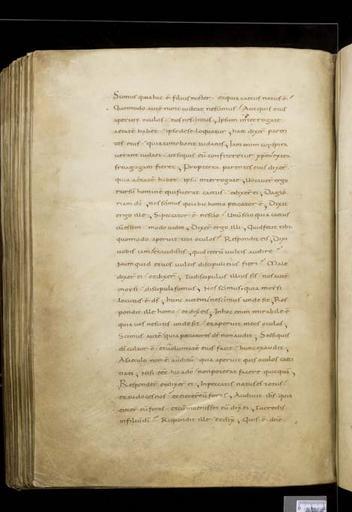 Scimus quia hic ē filius noster · et quia caecus natus ē ·
Quomodo autē nunc videat nescimus / Aut quis eius
aperuit oculos / nos nescimus ; Ipsum interrogate
aetatē habet / ipse de se loquatur ; haec dixer̄ paren
tes eius / quia timebant iudaeos ; Iam enim conspira
verant iudaei / ut si quis eū confiteretur xp̄m extra
synagogam fieret ; Propterea parentes eius dixer̄
quia aetatē habet / ipsū interrogate ; Vocaver̄ ergo
rursū hominē qui fuerat caecus / et dixer̄ ei ; Da glo
riam dō / nos scimus quia hic homo peccator ē ; Dixit
ergo ille ; Si peccator ē nescio / Unū scio quia caecus
cū essem / modo video ; Dixer̄ ergo illi ; Quid fecit tibi
quomodo aperuit tibi oculos / Respondit eis ; Dixi
vobis iam et audistis / quid iterū vultis audire /
Numquid et vos vultis discipuli eius fieri / Male
dixer̄ ei / et dixer̄ ; Tu discipulus illius sis / nos autē
moysi / discipuli sumus ; Nos scimus quia moysi
locutus ē d̄s / hunc autē nescimus unde sit ; Res
pondit ille homo / et dixit eis ; In hoc enim mirabile ē
quia vos nescitis unde sit / et aperuit meos oculos ;
Scimus autē quia peccatores d̄s non audit ; Sed si quis
dī cultor ē / et voluntatē eius facit / hunc exaudit ;
A saeculo non ē auditū / quia aperuit quis oculos caeci
nati ; Nisi eēt hic a dō / non poterat facere quicquā ;
Responder̄ et dixer̄ ei ; In peccatis natus es totus /
et tu doces nos / et eiecer̄ eū foras ; Audivit ih̄s quia
eiecer̄ eū foras / et cū invenisset eū dix̄ ei ; Tu credis
in filiū dī / Respondit ille / et dix̄ ; Quis ē dn̄e